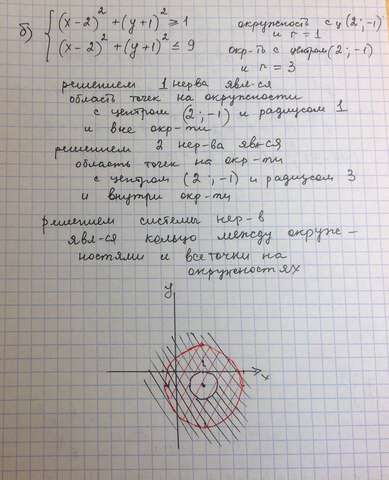 б) { (x-2)² + (y+1)² ≥ 1 окружность с ц (2; -1) и r = 1
(x-2)² + (y+1)² ≤ 9 окр-ть с центром (2; -1) и r = 3
решением 1 нерва явл-ся
область точек на окружности
с центром (2; -1) и радиусом 1
и вне окр-ти
решением 2 нер-ва явл-ся
область точек на окр-ти
с центром (2; -1) и радиусом 3
и внутри окр-ти
решением системы нер-в
явл-ся кольцо между окруж-
ностями и все точки на
окружностях
y
x